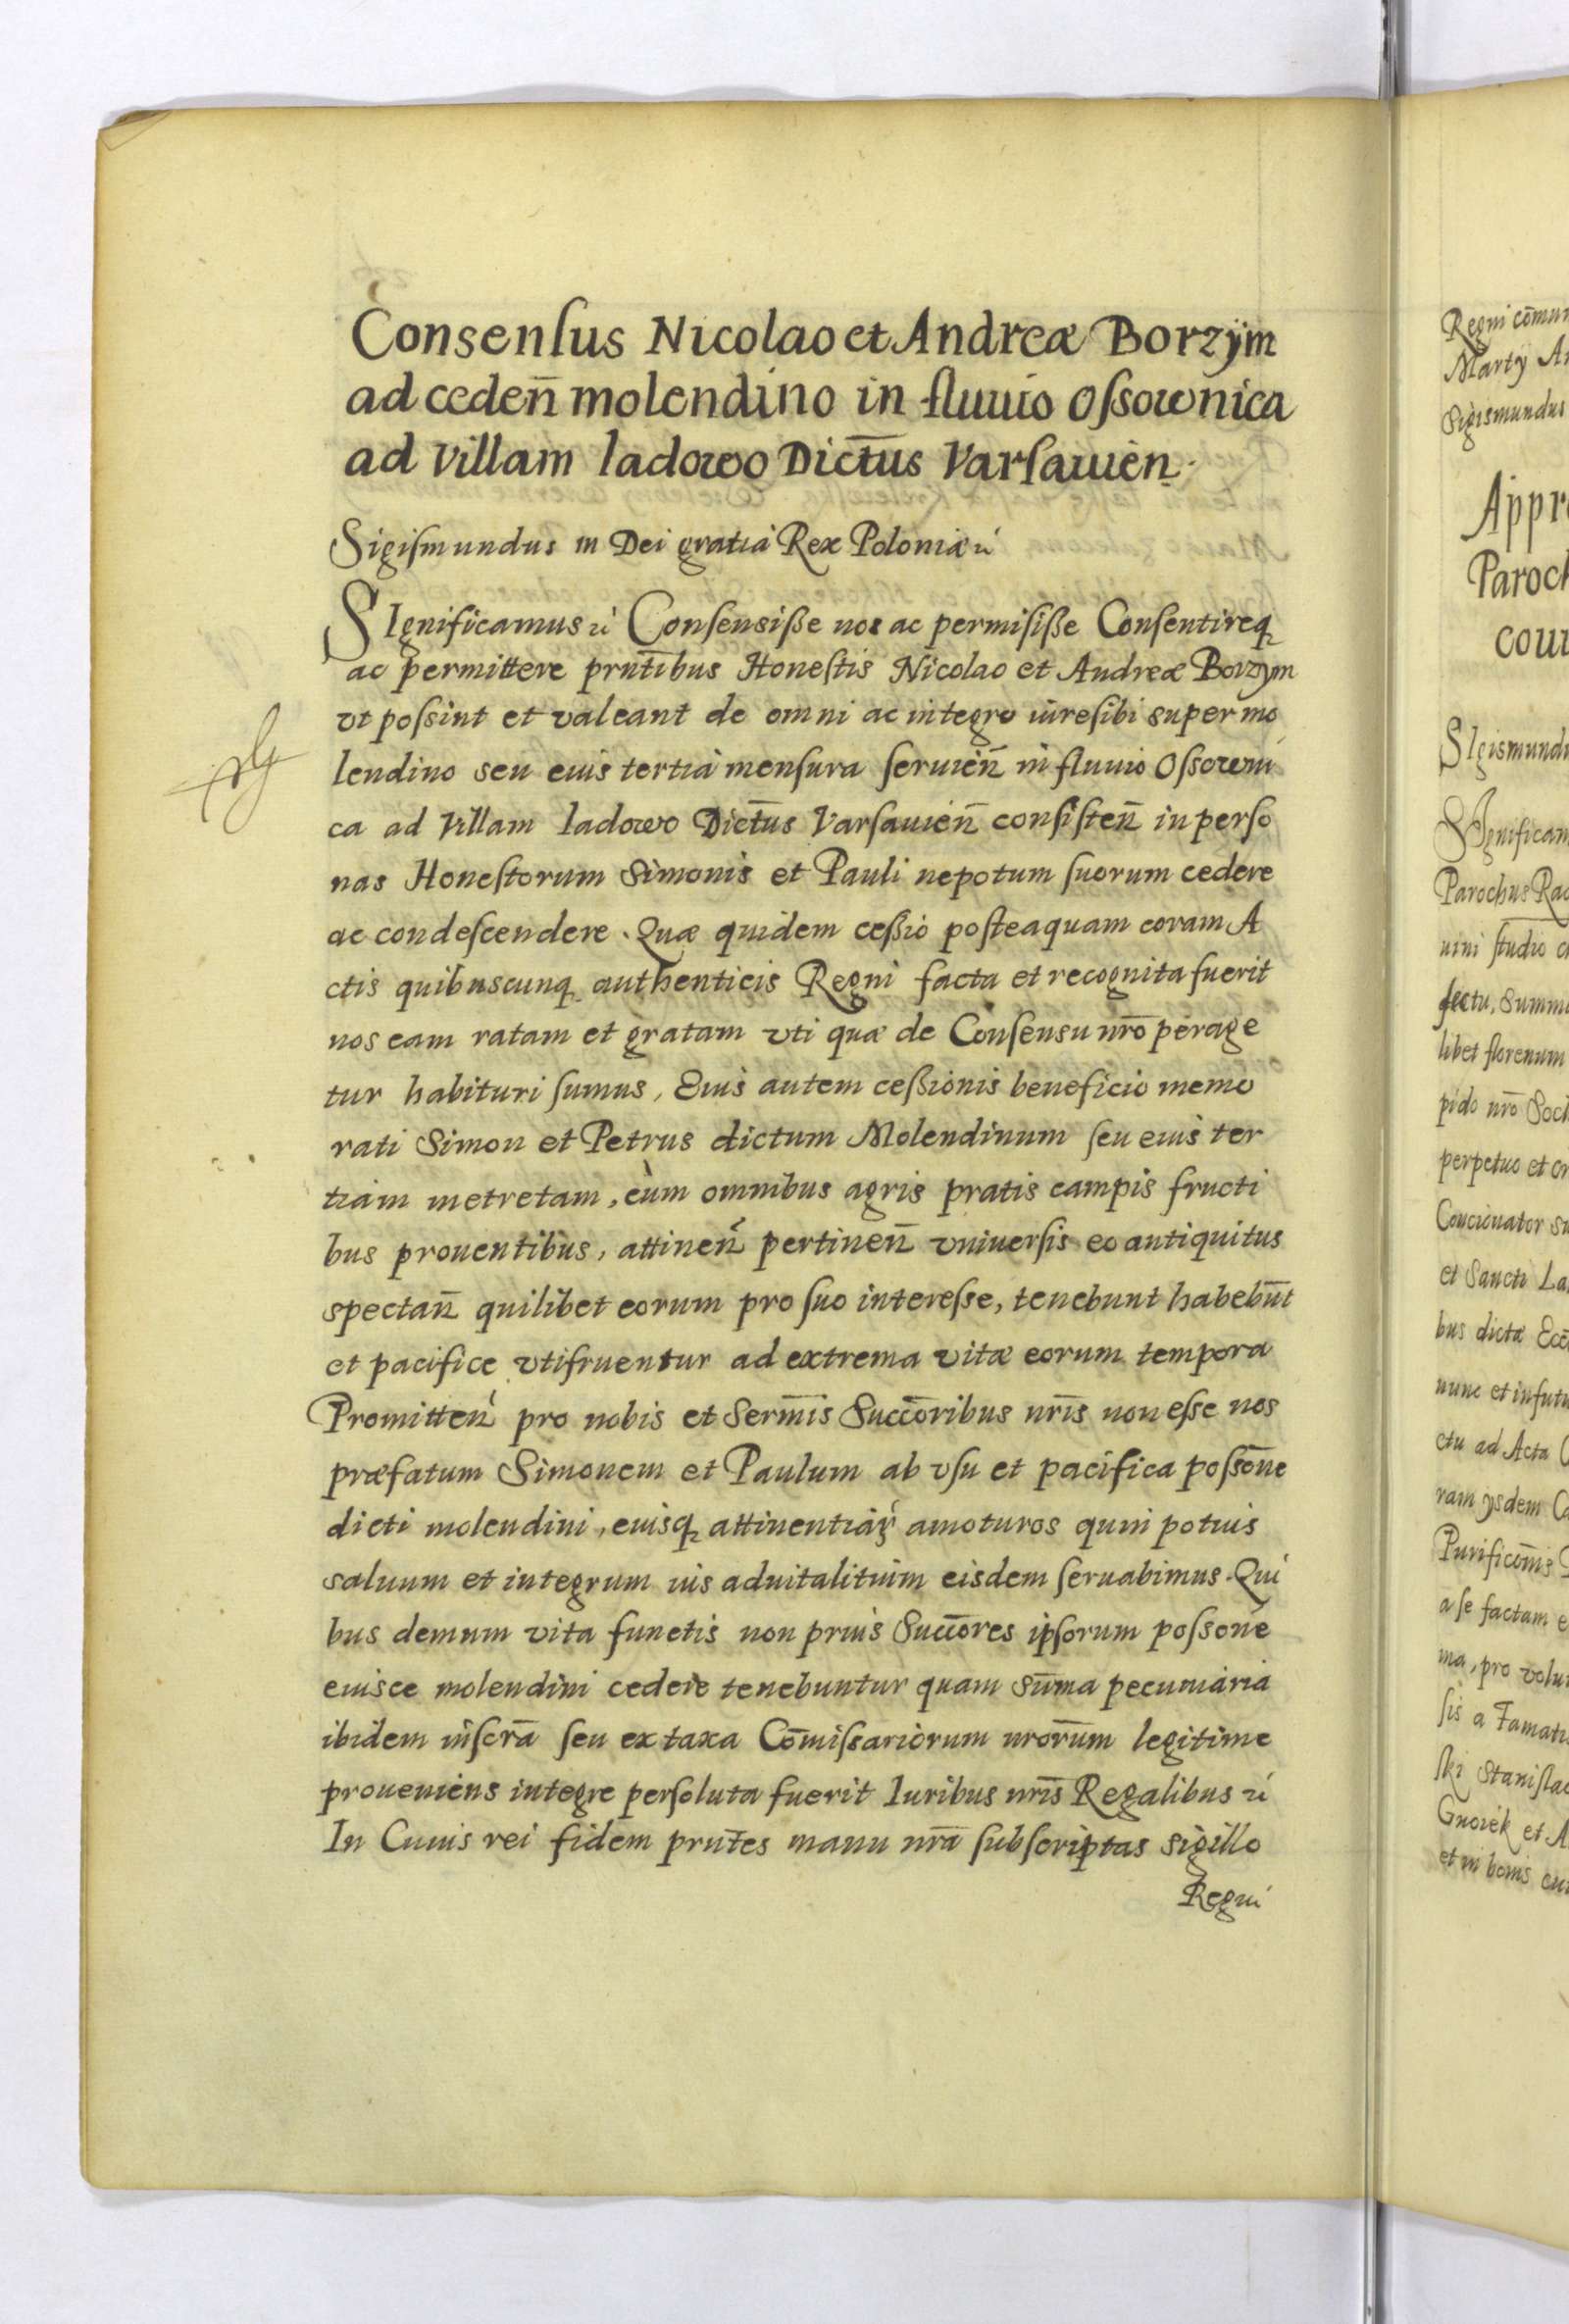 Consensus Nicolao et Andreæ Borzÿm
ad ceden̄ molendino in fluuio Ossownica
ad Villam Iadowo Dict̄us Varsauien.
Sigismundus III Dei gratia Rex Poloniæ
SIgnificamus Consensisse nos ac permisisse Consentireq
ac permittere prnt̄ibus Honestis Nicolao et Andreæ Borzym
vt possint et valeant de omni ac integro iure sibi super mo
lendino seu eius tertia mensura seruien̄ in fluuio Ossowni
ca ad Villam Iadowo Dict̄us Varsauien̄ consisten̄ in perso
nas Honestorum Simonis et Pauli nepotum suorum cedere
ac condescendere. Quæ quidem cessio posteaquam coram A
ctis quibuscunq authenticis Regni facta et recognita fuerit
nos eam ratam et gratam vti quæ de Consensu nr̄o perage
tur habituri sumus, Eius autem cessionis beneficio memo
rati Simon et Petrus dictum Molendinum seu eius ter
tiam metretam, cum omnibus agris pratis campis fructi
bus prouentibus, attinen̄ pertinen̄ vniuersis eo antiquitus
spectan̄ quilibet eorum pro suo interesse, tenebunt habebūt
et pacifice vtifruentur ad extrema vitæ eorum tempora
Promitten̄ pro nobis et Serm̄is Succ̄oribus nr̄is non esse nos
præfatum Simonem et Paulum ab vsu et pacifica possōne
dicti molendini, eiusq attinentiaꝝ amoturos quin potius
saluum et integrum ius aduitalitium eisdem seruabimus. Qui
bus demum vita functis non prius Succ̄ores ipsorum possōne
eiusce molendini cedere tenebuntur quam sūma pecuniaria
ibidem inscr̄a seu ex taxa Com̄issariorum nror̄um legitime
proueniens integre persoluta fuerit Iuribus nr̄is Regalibus
In Cuius rei fidem prnt̄es manu nr̄a subscriptas sigillo
Regni
Regni cōmun
Marty
Sigismundus
Appr
Paroch
SIgismund
SIgnifican
Parochus Rad
uini studio
fectu, Summ
libet florenum
pido nr̄o Soch
perpetuo et
Concionator su
et Sancti La
bus dictæ
nunc et in futu
ctu ad Acta
ram ysdem Ca
Purificōnis
a se factam e
ma, pro volu
sis a Famatis
ski Stanislao
Gnoiek et A
et in bonis